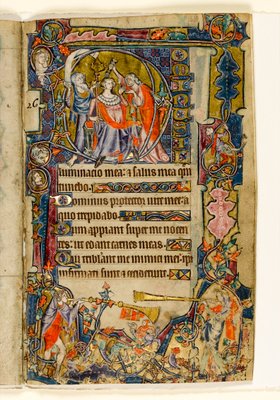 26
luminacio mea: & salus mea quē
timebo.
Dominus protector uite mee: a
quo trepidabo.
Dum appiant super me nocen
tes: ut edant carnes meas.
Qui tribulant me inimici mei: ipi
infirmati sunt & ceciderunt.